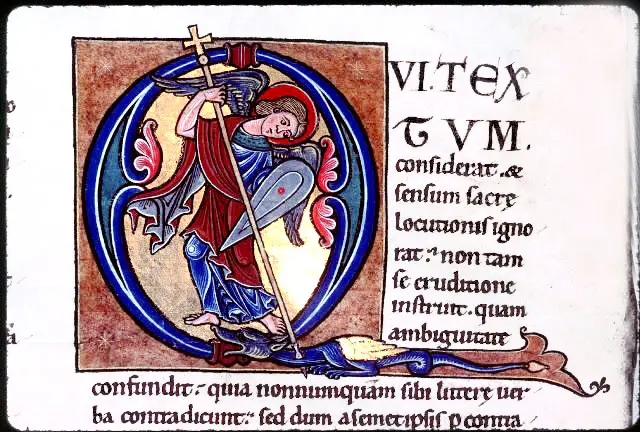 QVI.TEX
TVM.
considerat. &
sensum sacrę
locutionis igno
rat: non tam
se eruditione
instruit. quam
ambiguitate
confundit: quia nonnumquam sibi littere ver
ba contradicunt: sed dum a semetipsis p contra